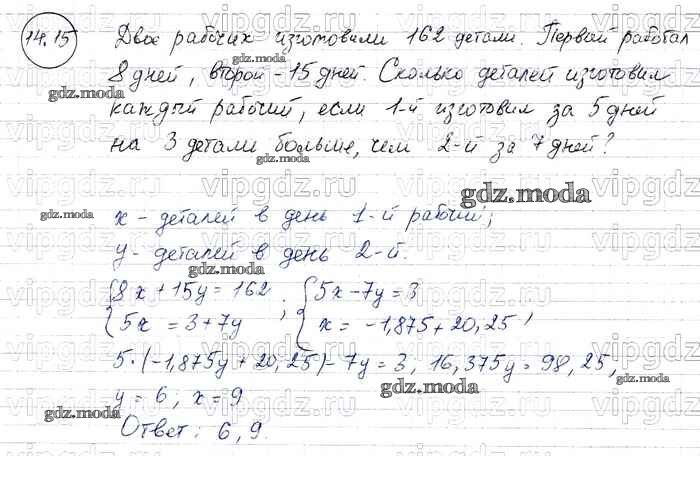 14.15 Двое рабочих изготовили 162 детали. Первый работал
8 дней, второй - 15 дней. Сколько деталей изготовил
каждый рабочий, если 1-й изготовил за 5 дней
на 3 детали больше, чем 2-й за 7 дней?
x - деталей в день 1-й рабочий;
y - деталей в день 2-й.
{8x + 15y = 162 ; {5x - 7y = 3
{5x = 3 + 7y {x = -1,875 + 20,25,
5·(-1,875y + 20,25) - 7y = 3; 16,375y = 98,25,
y = 6, x = 9
Ответ: 6, 9.
gdz.moda
vipgdz.ru